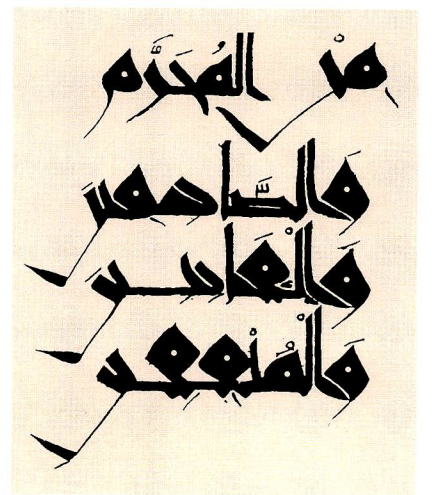 مِنْ المُحَرَّم
وَالصَّادِقِينَ
وَالْقَانِتِينَ
وَالْمُنْفِقِينَ